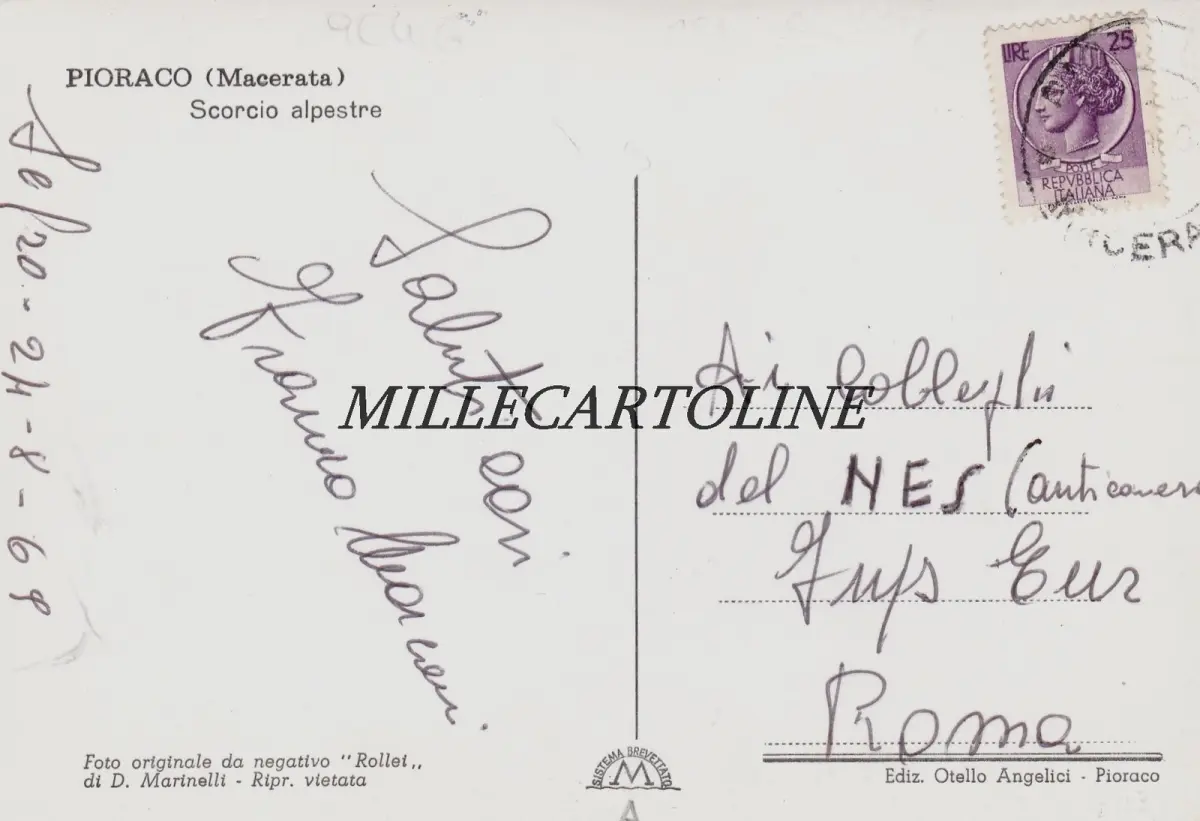 PIORACO (Macerata)
Scorcio alpestre
LIRE 25
POSTE
REPVBBLICA
ITALIANA
20-24-8-68
Saluti cari
Franco
MILLECARTOLINE
Ai Colleghi
del NES
Inps Eur
Roma
Foto originale da negativo "Rollei„
di D. Marinelli - Ripr. vietata
SISTEMA BREVETTATO
M
A
Ediz. Otello Angelici - Pioraco